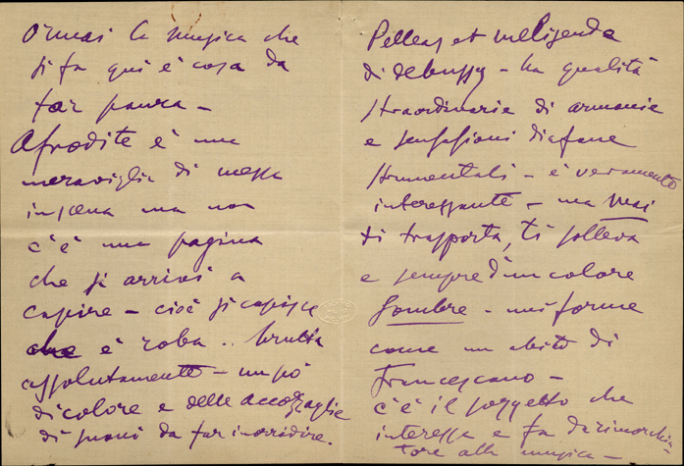 Ormai la musica che
si fa qui è cosa da
far paura -
Afrodite è una
meraviglia di messa
in scena ma non
c'è una pagina
che si arrivi a
capire - cioè si capisce
che è roba .. brutta
assolutamente - un pò
di colore e delle accozzaglie
di suoni da far inorridire.
Pelleas et
di debussy - ha qualità
straordinarie di armonie
e sensazioni diafane
strumentali - è veramente
interessante - ma mai
ti trasporta, ti solleva
e sempre d'un colore
sombre - uniforme
come un abito di
Francescano -
c'è il soggetto che
interessa e fa da rimorchia-
tore alla musica -